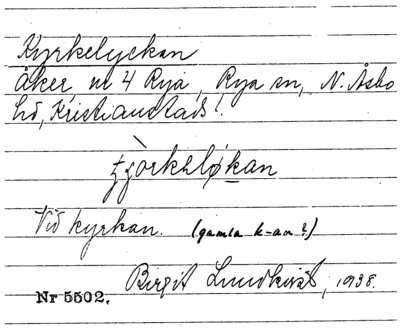 Kyrkelyckan
åker, nr 4 Rya, Rya sn, N. Åsbo
hd, Kristianstads l.
Vid kyrkan. (gamla k-an?)
Birgit Lundkvist, 1938.
Nr 5502.